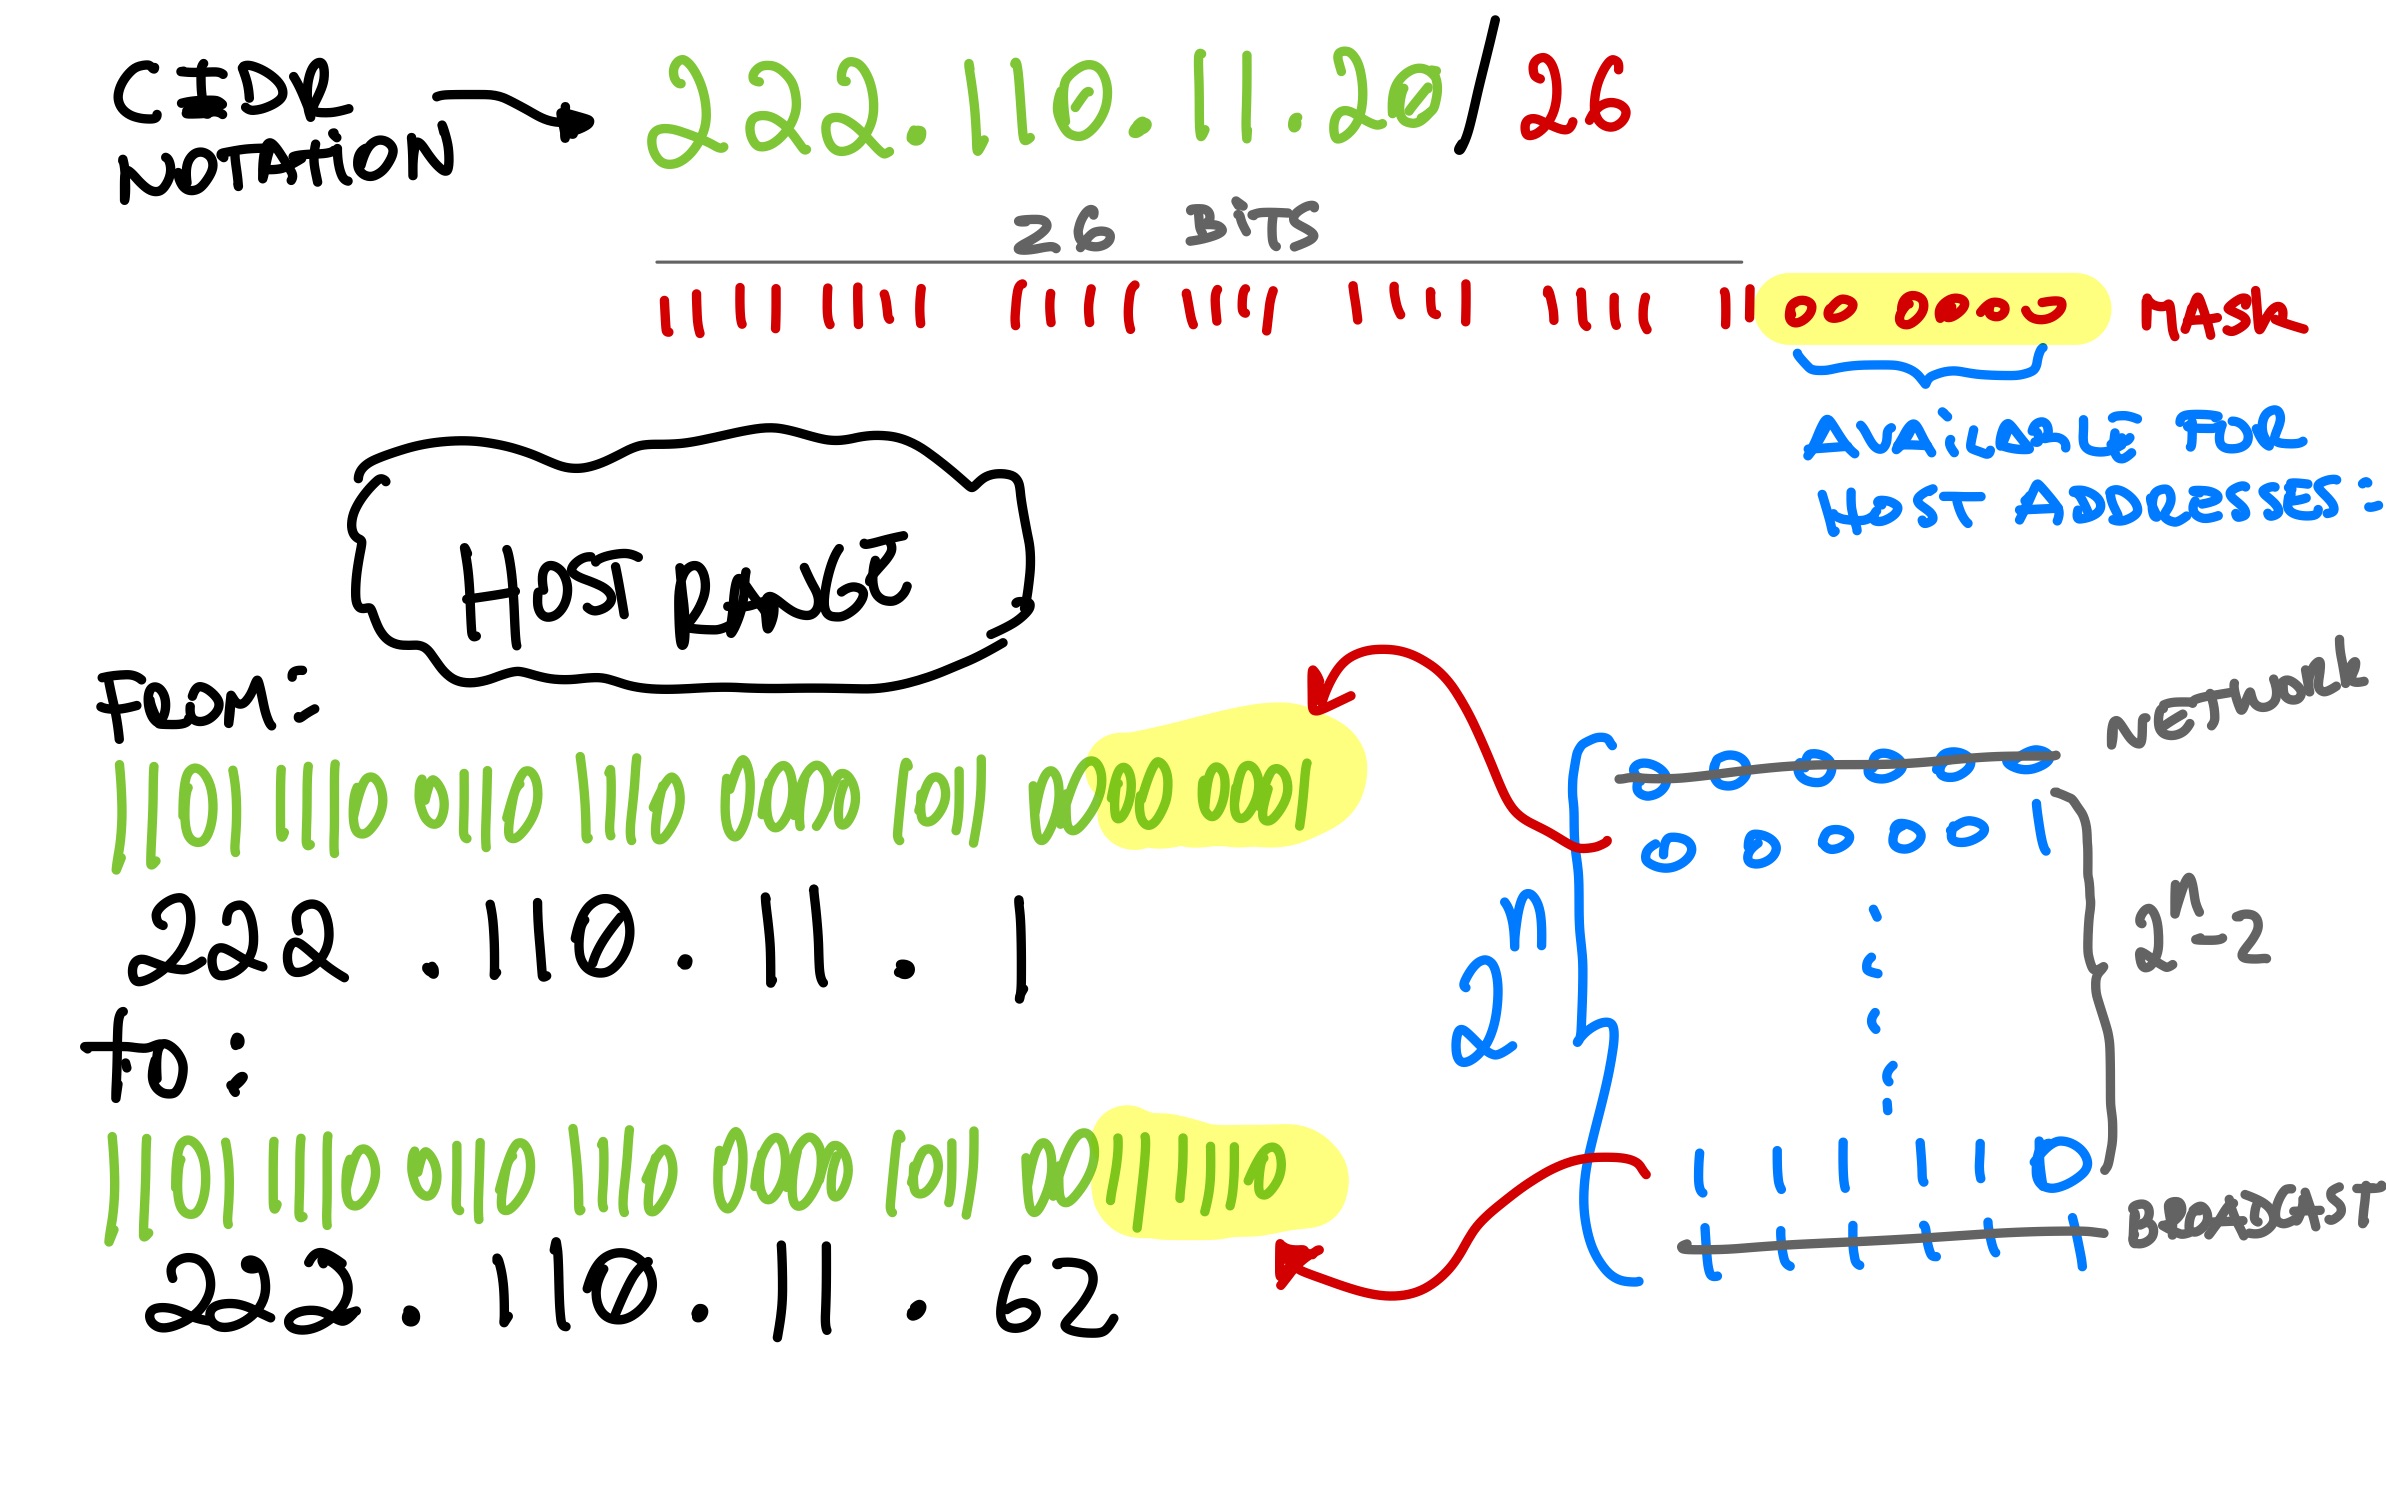 CIDR
NOTATION
222.110.11.20/26
26 BITS
1111 1111 1111 1111 1111 1111 11 00 0000 MASK
AVAILABLE FOR
HOST ADDRESSES:
HOST RANGE
FROM:
1101 1110 0110 1110 0000 1011 0000 0001
222.110.11.1
to:
1101 1110 0110 1110 0000 1011 0011 1110
222.110.11.62
2^n
0 0 0 0 0 0 NETWORK
0 0 0 0 0 1
2^n-2
1 1 1 1 1 0
1 1 1 1 1 1 BROADCAST